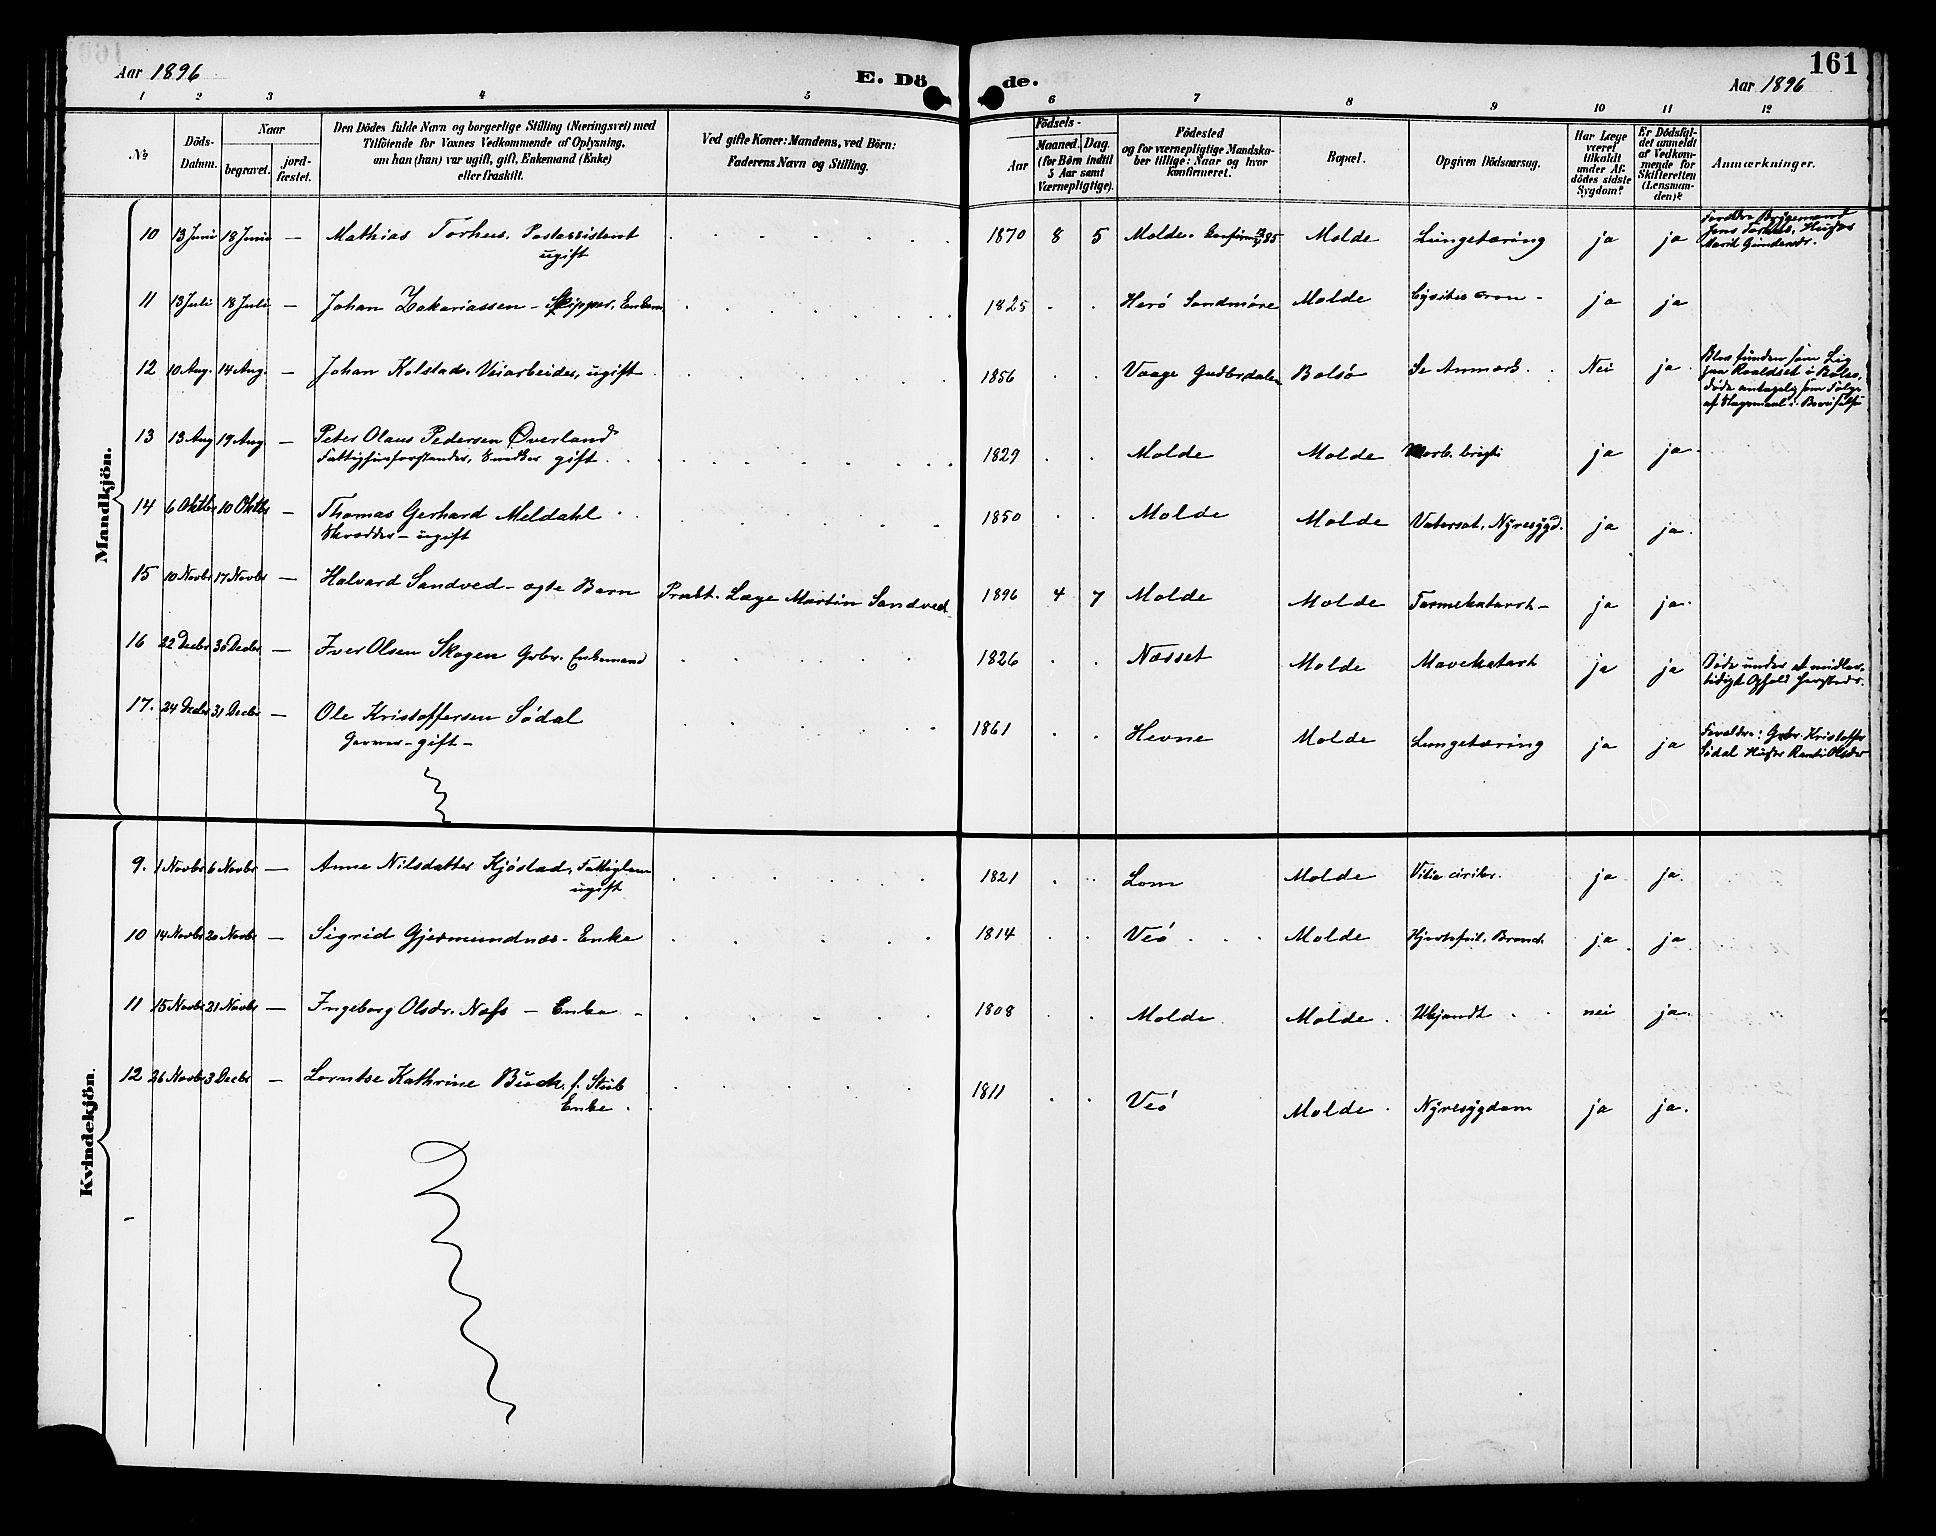 Aar 1896
E. Dö de.
161
Aar 1896
1 2 3 4 5 6 7 8 9 10 11 12
№
Döds-Datum.
Naar
begravet.
jord-fæstet.
Den Dödes fulde Navn og borgerlige Stilling (Næringsvei) med
Tilföiende for Voxnes Vedkommende af Oplysning,
om han (hun) var ugift, gift, Enkemand (Enke)
eller fraskilt.
Ved gifte Koner: Mandens, ved Börn:
Faderens Navn og Stilling.
Födsels-
Aar
Maaned. Dag.
(for Börn indtil
5 Aar samt
Værnepligtige).
Födested
og for værnepligtige Mandska-
ber tillige: Naar og hvor
konfirmeret.
Bopæl.
Opgiven Dödsaarsag.
Har Læge
været
tilkaldt
under Af-
dödes sidste
Sygdom?
Er Dödsfal-
det anmeldt
af Vedkom-
mende for
Skifteretten
(Lensman-
den)?
Anmærkninger.
Mandkjön.
10 13 Juni 18 Juni — Mathias Torhus. Postassistent 1870 8 5 Molde. Molde Lungetæring ja ja
ugift
Marit Gundersdr.
11 13 Juli 18 Juli — Johan Zakariassen – Skipper, Enkem. 1825 Herö Söndmöre Molde ja ja
12 10 Aug. 14 Aug. — Johan Kolstad. Veiarbeider, ugift 1856 Vaage Gudbrdalen Bolsö Se Anmærk. Nei ja
Blev funden som Lig
13 13 Aug 19 Aug — Peter Olaus Pedersen Överland 1829 Molde Molde ja ja
Fattighusforstander, Snedker gift
14 6 Oktbr 10 Oktbr — Thomas Gerhard Meldahl 1850 Molde Molde Vatersot, Nyresygd. ja ja
Skrædder – ugift
15 10 Novbr 17 Novbr — Halvard Sandved – ægte Barn Prakt. Læge Martin Sandved 1896 4 7 Molde Molde Tarmekatarrh – ja ja
16 22 Decbr 30 Decbr. — Iver Olsen Skogen Grbr. Enkemand 1826 Næsset Molde Mavekatarh ja ja Döde under et midler-
tidigt Ophold
17. 24 Decbr 31 Decbr — Ole Kristoffersen Södal 1861 Hevne Molde Lungetæring ja ja Forældre: Grbr. Kristoffer
Garver – gift – Södal Hustr Olsdtr
Kvindekjön.
9. 1 Novbr 6 Novbr — Anne Nilsdatter Kjöstad, Fattiglem 1821 Lom Molde ja ja.
ugift
10 14 Novbr 20 Novbr — Sigrid Gjermundnæs – Enke 1814 Veö Molde Hjertefeil, ja ja
11 15 Novbr 21 Novbr — Ingeborg Olsdr. Næss – Enke 1808 Molde Molde Ukjendt nei ja.
12 26 Novbr 3 Decbr — Lorntse Kathrine Buch, f. Stub 1811 Veö Molde Nyresygdom ja ja.
Enke